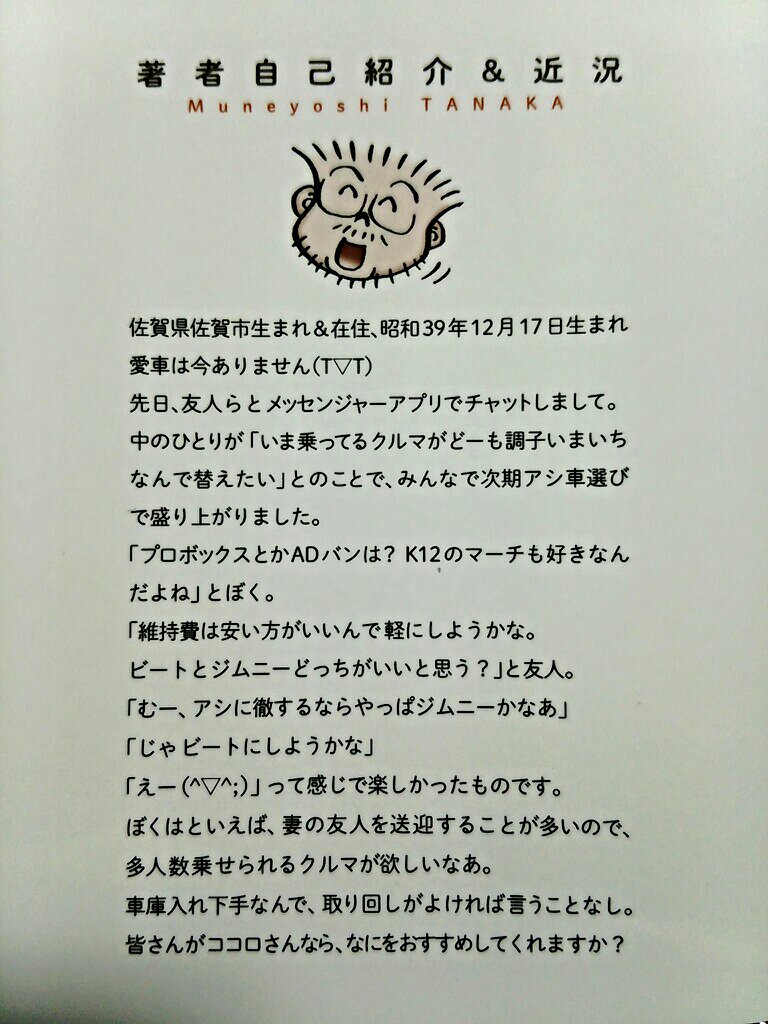 著者自己紹介&近況
Muneyoshi TANAKA
佐賀県佐賀市生まれ&在住、昭和39年12月17日生まれ
愛車は今ありません(T▽T)
先日、友人らとメッセンジャーアプリでチャットしまして。
中のひとりが「いま乗ってるクルマがどーも調子いまいち
なんで替えたい」とのことで、みんなで次期アシ車選び
で盛り上がりました。
「プロボックスとかADバンは? K12のマーチも好きなん
だよね」とぼく。
「維持費は安い方がいいんで軽にしようかな。
ビートとジムニーどっちがいいと思う?」と友人。
「むー、アシに徹するならやっぱジムニーかなあ」
「じゃビートにしようかな」
「えー(^▽^;)」って感じで楽しかったものです。
ぼくはといえば、妻の友人を送迎することが多いので、
多人数乗せられるクルマが欲しいなあ。
車庫入れ下手なんで、取り回しがよければ言うことなし。
皆さんがココロさんなら、なにをおすすめしてくれますか?